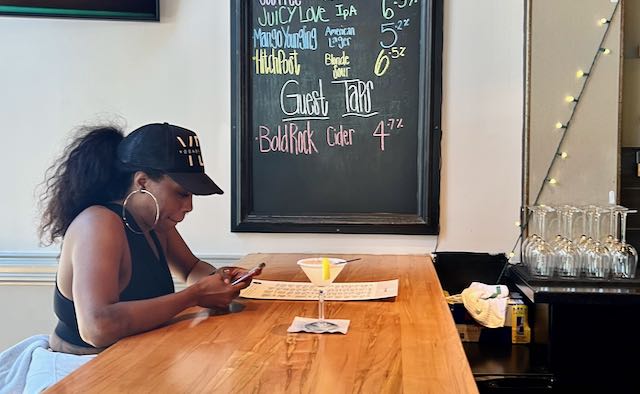 JUicyLove IPA 6.5%
Mango Youngling American Lager 5.2%
HitchPost Blonde Sour 6.5%
Guest Taps
BoldRock Cider 4.7%